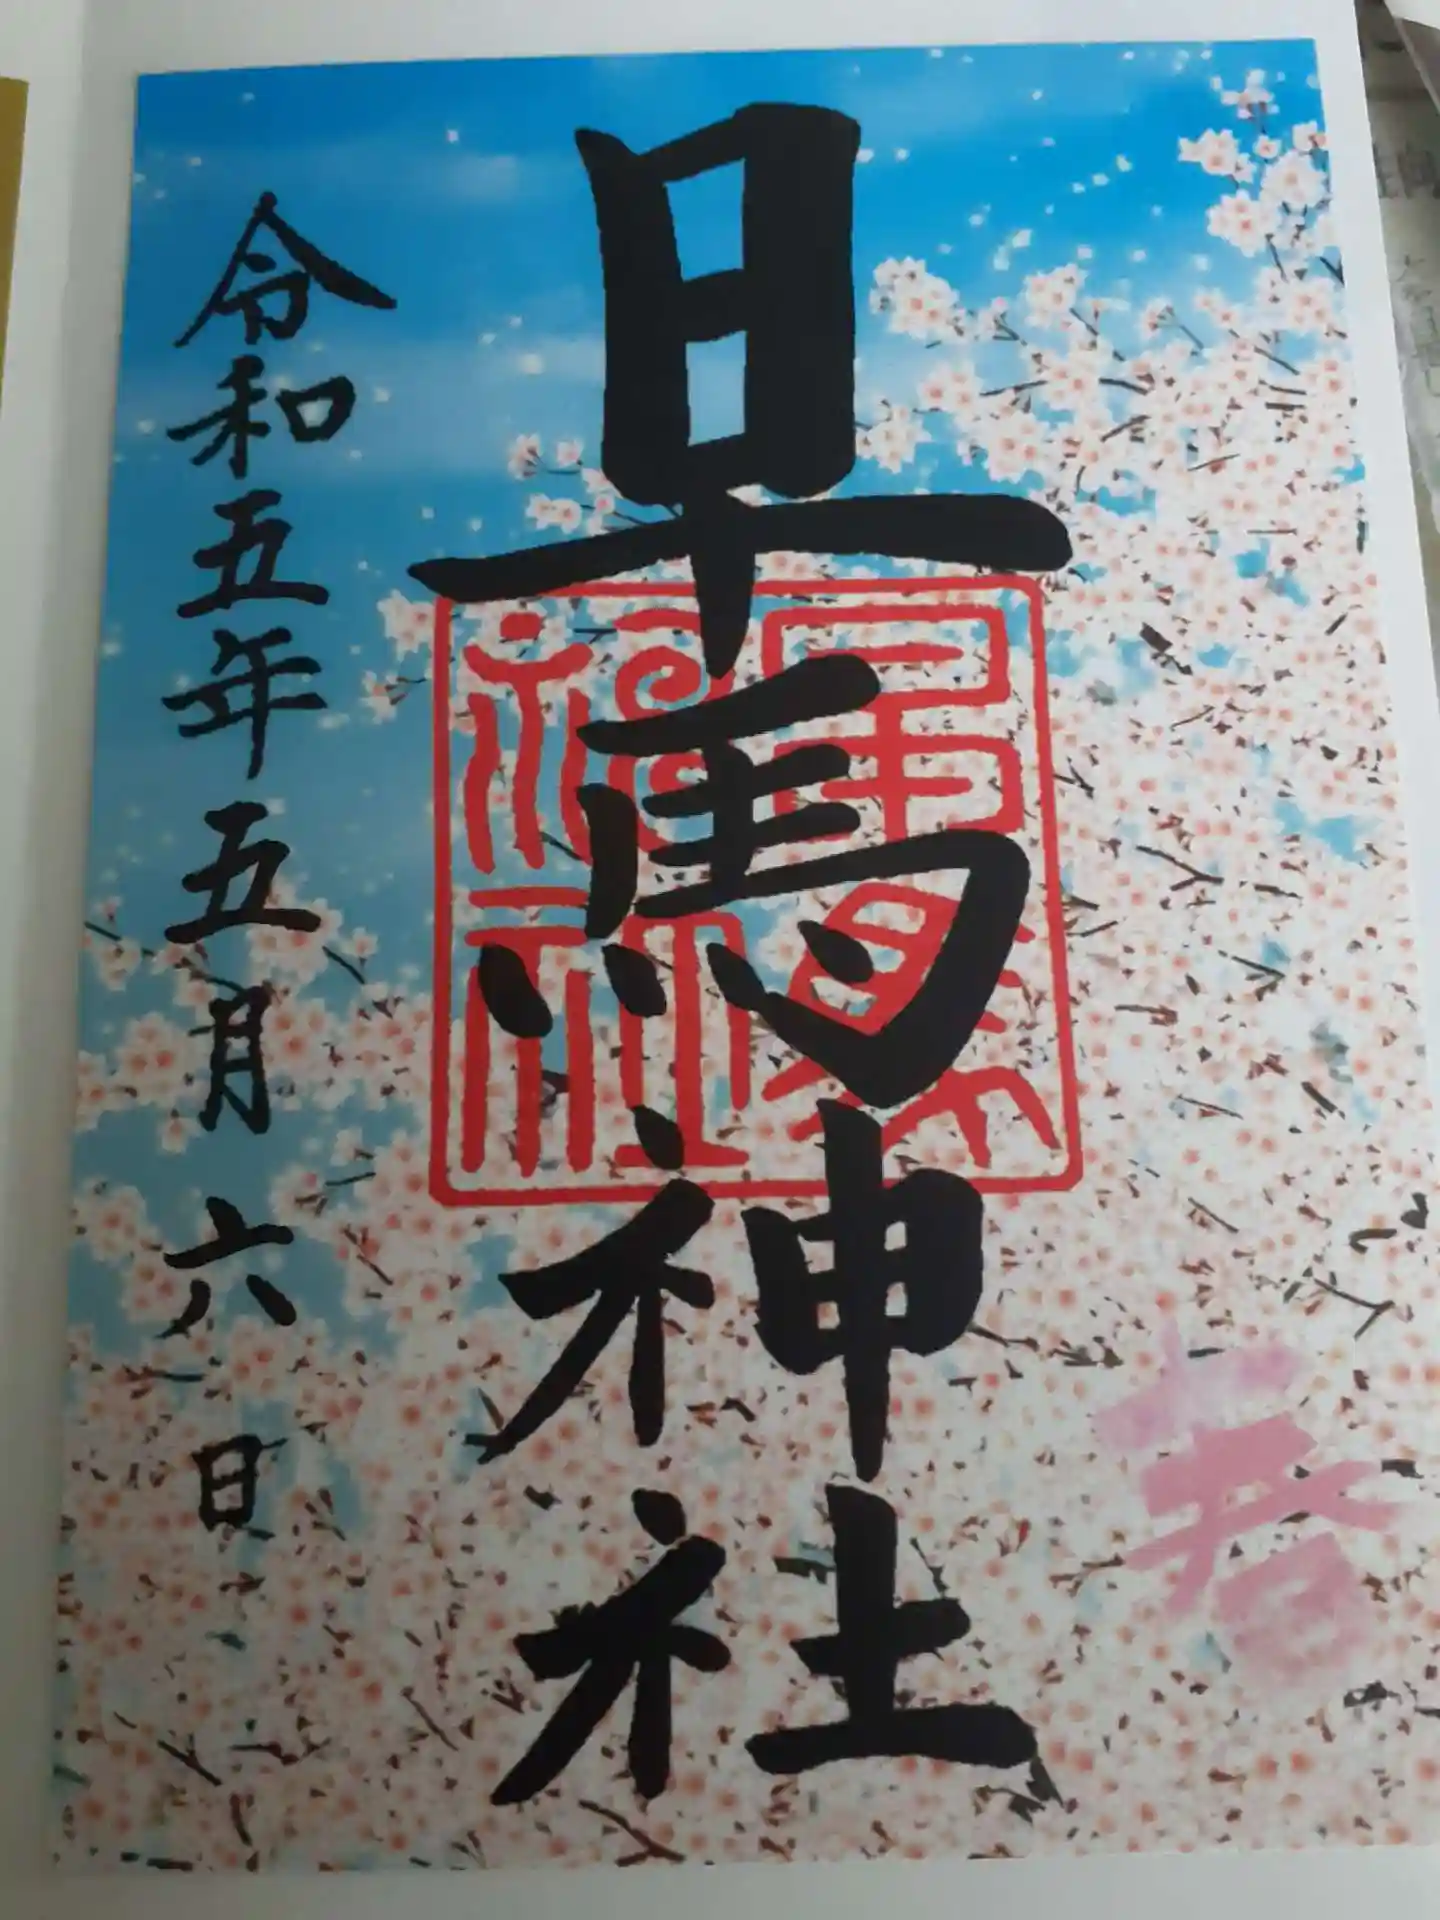 早馬神社
早馬神社
令和五年五月六日
春